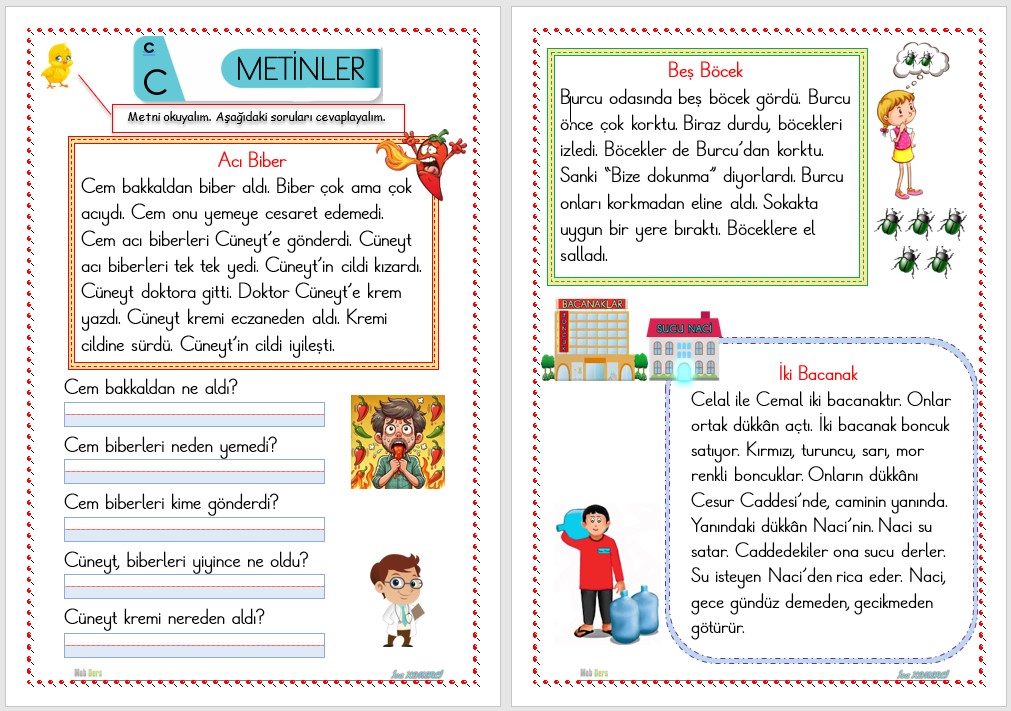 c
C
METİNLER
Metni okuyalım. Aşağıdaki soruları cevaplayalım.
Acı Biber
Cem bakkaldan biber aldı. Biber çok ama çok
acıydı. Cem onu yemeye cesaret edemedi.
Cem acı biberleri Cüneyt’e gönderdi. Cüneyt
acı biberleri tek tek yedi. Cüneyt’in cildi kızardı.
Cüneyt doktora gitti. Doktor Cüneyt’e krem
yazdı. Cüneyt kremi eczaneden aldı. Kremi
cildine sürdü. Cüneyt’in cildi iyileşti.
Cem bakkaldan ne aldı?
Cem biberleri neden yemedi?
Cem biberleri kime gönderdi?
Cüneyt, biberleri yiyince ne oldu?
Cüneyt kremi nereden aldı?
Meb Ders
Beş Böcek
Burcu odasında beş böcek gördü. Burcu
önce çok korktu. Biraz durdu, böcekleri
izledi. Böcekler de Burcu’dan korktu.
Sanki “Bize dokunma” diyorlardı. Burcu
onları korkmadan eline aldı. Sokakta
uygun bir yere bıraktı. Böceklere el
salladı.
BACANAKLAR
BONCUK
SUCU NACİ
İki Bacanak
Celal ile Cemal iki bacanaktır. Onlar
ortak dükkân açtı. İki bacanak boncuk
satıyor. Kırmızı, turuncu, sarı, mor
renkli boncuklar. Onların dükkânı
Cesur Caddesi’nde, caminin yanında.
Yanındaki dükkân Naci’nin. Naci su
satar. Caddedekiler ona sucu derler.
Su isteyen Naci’den rica eder. Naci,
gece gündüz demeden, gecikmeden
götürür.
Meb Ders